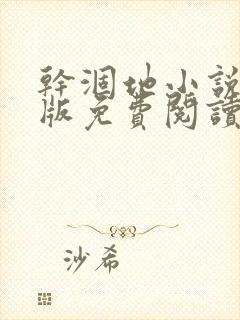 幹涸地小說
版免費閱讀
沙希